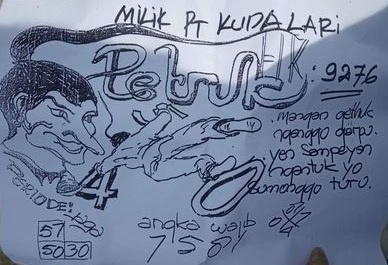 MILIK PT KUDALARI
Petruk
HK: 9276
. mangan getuk
ngenggo garpu.
. yen sampeyan
ngantuk yo
sumonggo turu.
4
PERIODE:
57
50 30
angka wajib
7 5 8